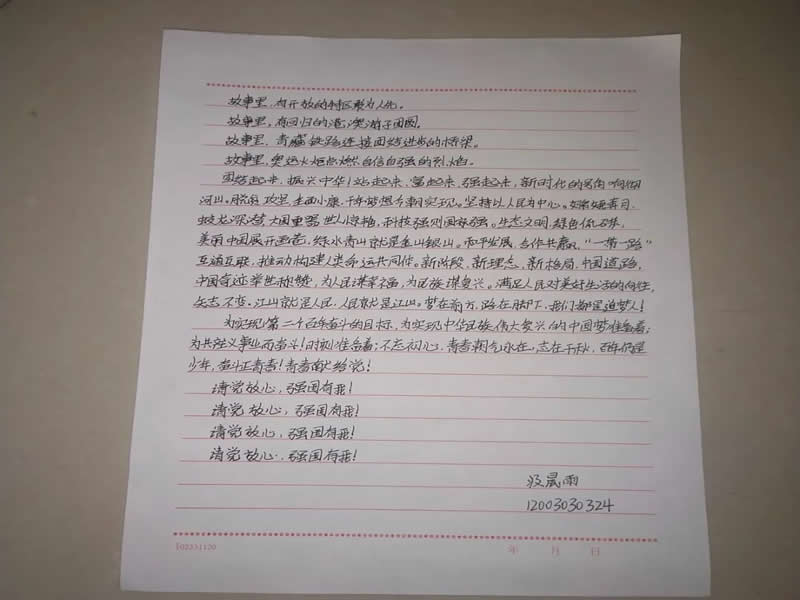 故事里,有开放的特区敢为人先。
故事里,有回归的港澳游子团圆。
故事里,青藏铁路连接团结进步的桥梁。
故事里,奥运火炬点燃自信自强的烈焰。
团结起来,振兴中华!站起来,富起来,强起来,新时代的号角响彻
河山。脱贫攻坚,全面小康,千年梦想今朝实现。坚持以人民为中心。嫦娥奔月,
蛟龙深潜,大国重器世人惊艳,科技强则国家强。生态文明,绿色低碳,
美丽中国展开画卷,绿水青山就是金山银山。和平发展,合作共赢,“一带一路”
互通互联,推动构建人类命运共同体。新阶段,新理念,新格局,中国道路,
中国奇迹举世称赞,为人民谋幸福,为民族谋复兴。满足人民对美好生活的向往,
矢志不变,江山就是人民,人民就是江山。梦在前方,路在脚下,我们都是追梦人!
为实现第二个百年奋斗的目标,为实现中华民族伟大复兴的中国梦准备着;
为共产主义事业而奋斗!时刻准备着;不忘初心,青春朝气永在,志在千秋,百年仍是
少年,奋斗正青春!青春献给党!
请党放心,强国有我!
请党放心,强国有我!
请党放心,强国有我!
请党放心,强国有我!
晟雨
12003030324
102231120
年 月 日